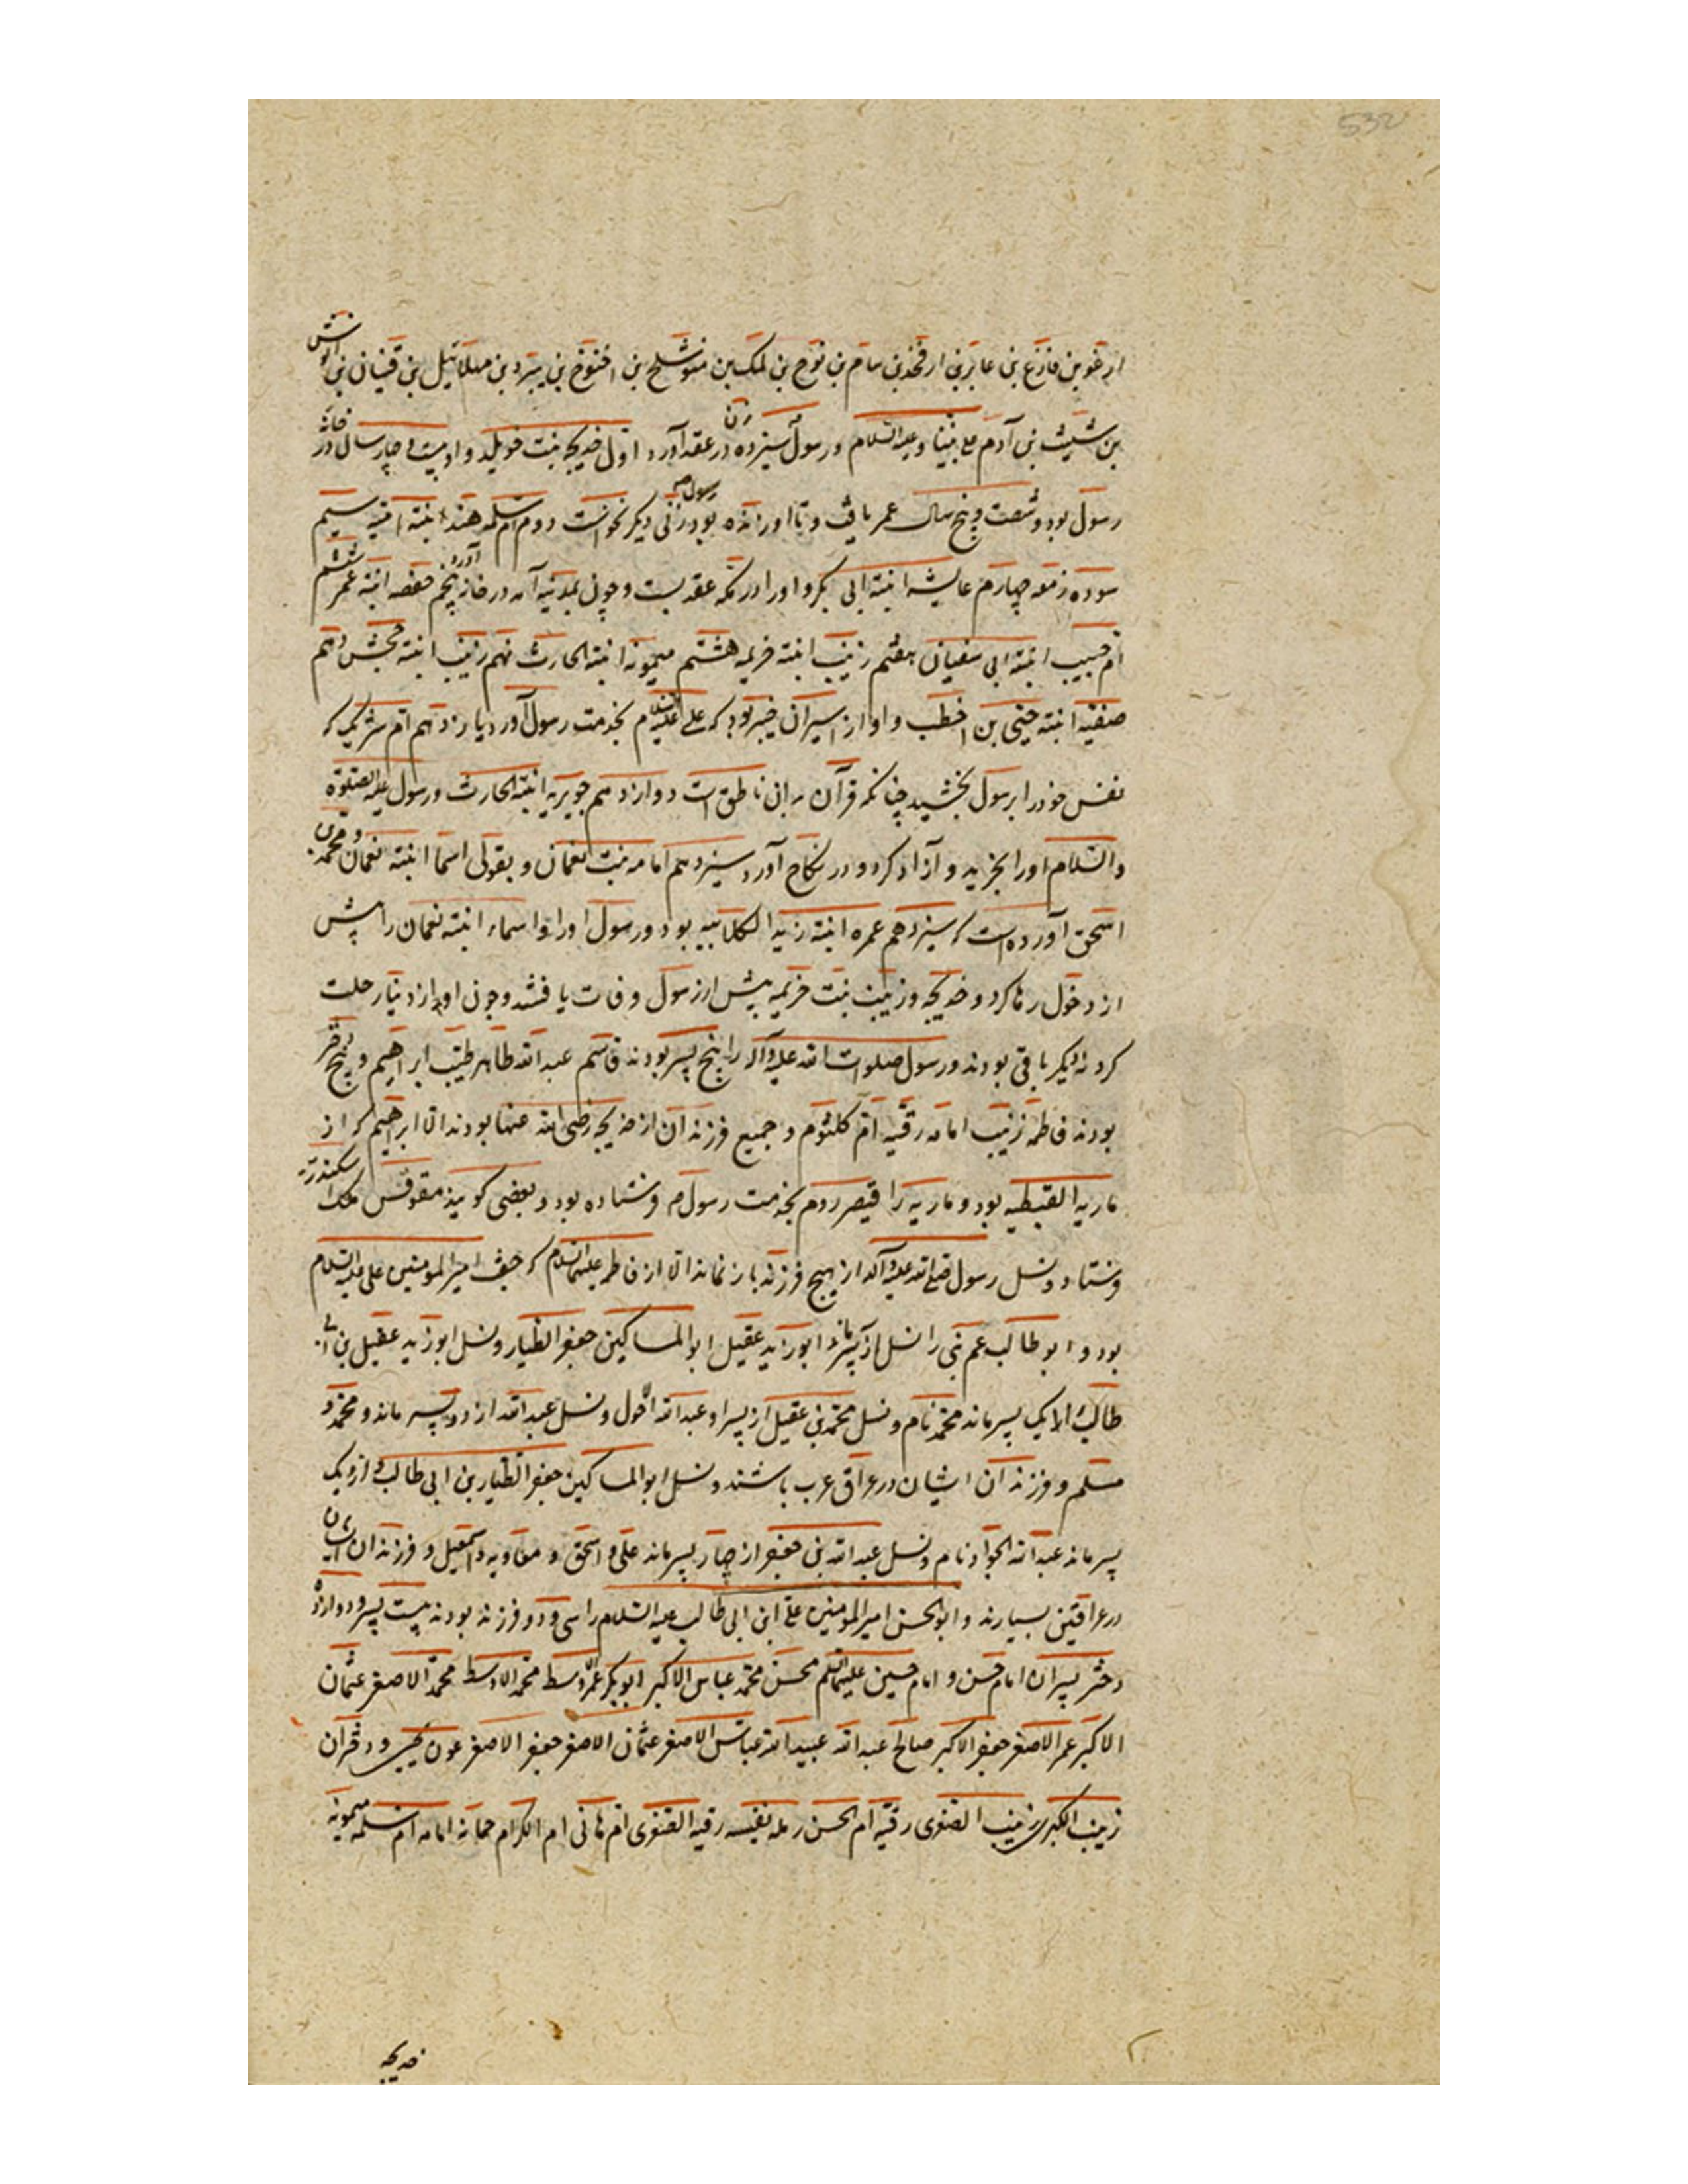 532
ارغو بن فازغ بن عابر بن ارفخد بن سام بن نوح بن لمک بن متوشلح بن اخنوخ بن یرد بن مهلائیل بن قینان بن انوش
بن شیث بن آدم علی نبینا و علیه السلام و رسول سیزده زن در عقد آورد اول خدیجه بنت خویلد و او بیست و چهار سال در خانه
رسول بود و شصت و پنج سال عمر یافت و تا او زنده بود رسول زنی دیگر نخواست دوم ام سلمه هند ابنته امیه سیم
سوده زمعه چهارم عایشه ابنته ابی بکر و او را در مکه عقد بست و چون بمدینه آمد در خانه آورد پنجم حفصه ابنته عمر ششم
ام حبیب ابنته ابی سفیان هفتم زینب ابنته خزیمه هشتم میمونه ابنته الحارث نهم زینب ابنته جحش دهم
صفیه ابنته حیی بن اخطب و او از اسیران خیبر بود که علی علیه السلام بخدمت رسول آورد یازدهم ام شریک که
نفس خود را برسول بخشید چنانکه قرآن بدان ناطق است دوازدهم جویریه ابنته الحارث و رسول علیه الصلوة
والسلام او را بخرید و آزاد کرد و در نکاح آورد سیزدهم امامه بنت نعمان و بقولی اسما ابنته نعمان و محمد بن
اسحق آورده است که سیزدهم عمره ابنته زید الکلابیه بود و رسول او را و اسماء ابنته نعمان را پیش
از دخول رها کرد و خدیجه و زینب بنت خزیمه پیش از رسول وفات یافتند و چون او از دنیا رحلت
کرد نه دیگر باقی بودند و رسول صلوات الله علیه و آله را پنج پسر بودند قاسم عبدالله طاهر طیب ابراهیم و پنج دختر
بودند فاطمه زینب امامه رقیه ام کلثوم و جمیع فرزندان از خدیجه رضی الله عنها بودند الا ابراهیم که از
ماریه القبطیه بود و ماریه را قیصر روم بخدمت رسول م فرستاده بود و بعضی گویند مقوقس ملک اسکندریه
فرستاد و نسل رسول صلی الله علیه و آله از هیچ فرزند باز نماند الا از فاطمه علیها السلام که جفت امیرالمومنین علی علیه السلام
بود و ابوطالب عم نبی را نسل از پسر ماند ابوزید عقیل ابوالمساکین جعفر الطیار و نسل ابوزید عقیل بن ابی
طالب الا یک پسر ماند محمد نام و نسل محمد بن عقیل از پسر او عبدالله احول و نسل عبدالله از دو پسر ماند و محمد و
مسلم و فرزندان ایشان در عراق عرب باشند و نسل ابوالمساکین جعفر الطیار بن ابی طالب از یک
پسر ماند عبدالله الجواد نام و نسل عبدالله بن جعفر از چهار پسر ماند علی و اسحق و معاویه و اسمعیل و فرزندان ایشان
در عراقین بسیارند و ابوالحسن امیرالمومنین علی ابن ابی طالب علیه السلام را سی و دو فرزند بودند بیست پسر و دوازده
دختر پسران امام حسن و امام حسین علیهما السلم محسن محمد عباس الاکبر ابوبکر عمر اوسط محمد الاوسط محمد الاصغر عثمان
الاکبر عمر الاصغر جعفر الاکبر صالح عبدالله عبیدالله عباس الاصغر عثمان الاصغر جعفر الاصغر عون یحیی و دختران
زینب الکبری زینب الصغری رقیه ام الحسن رمله نفیسه رقیه الصغری ام هانی ام الکرام جمانه امامه ام سلمه میمونه
خدیجه